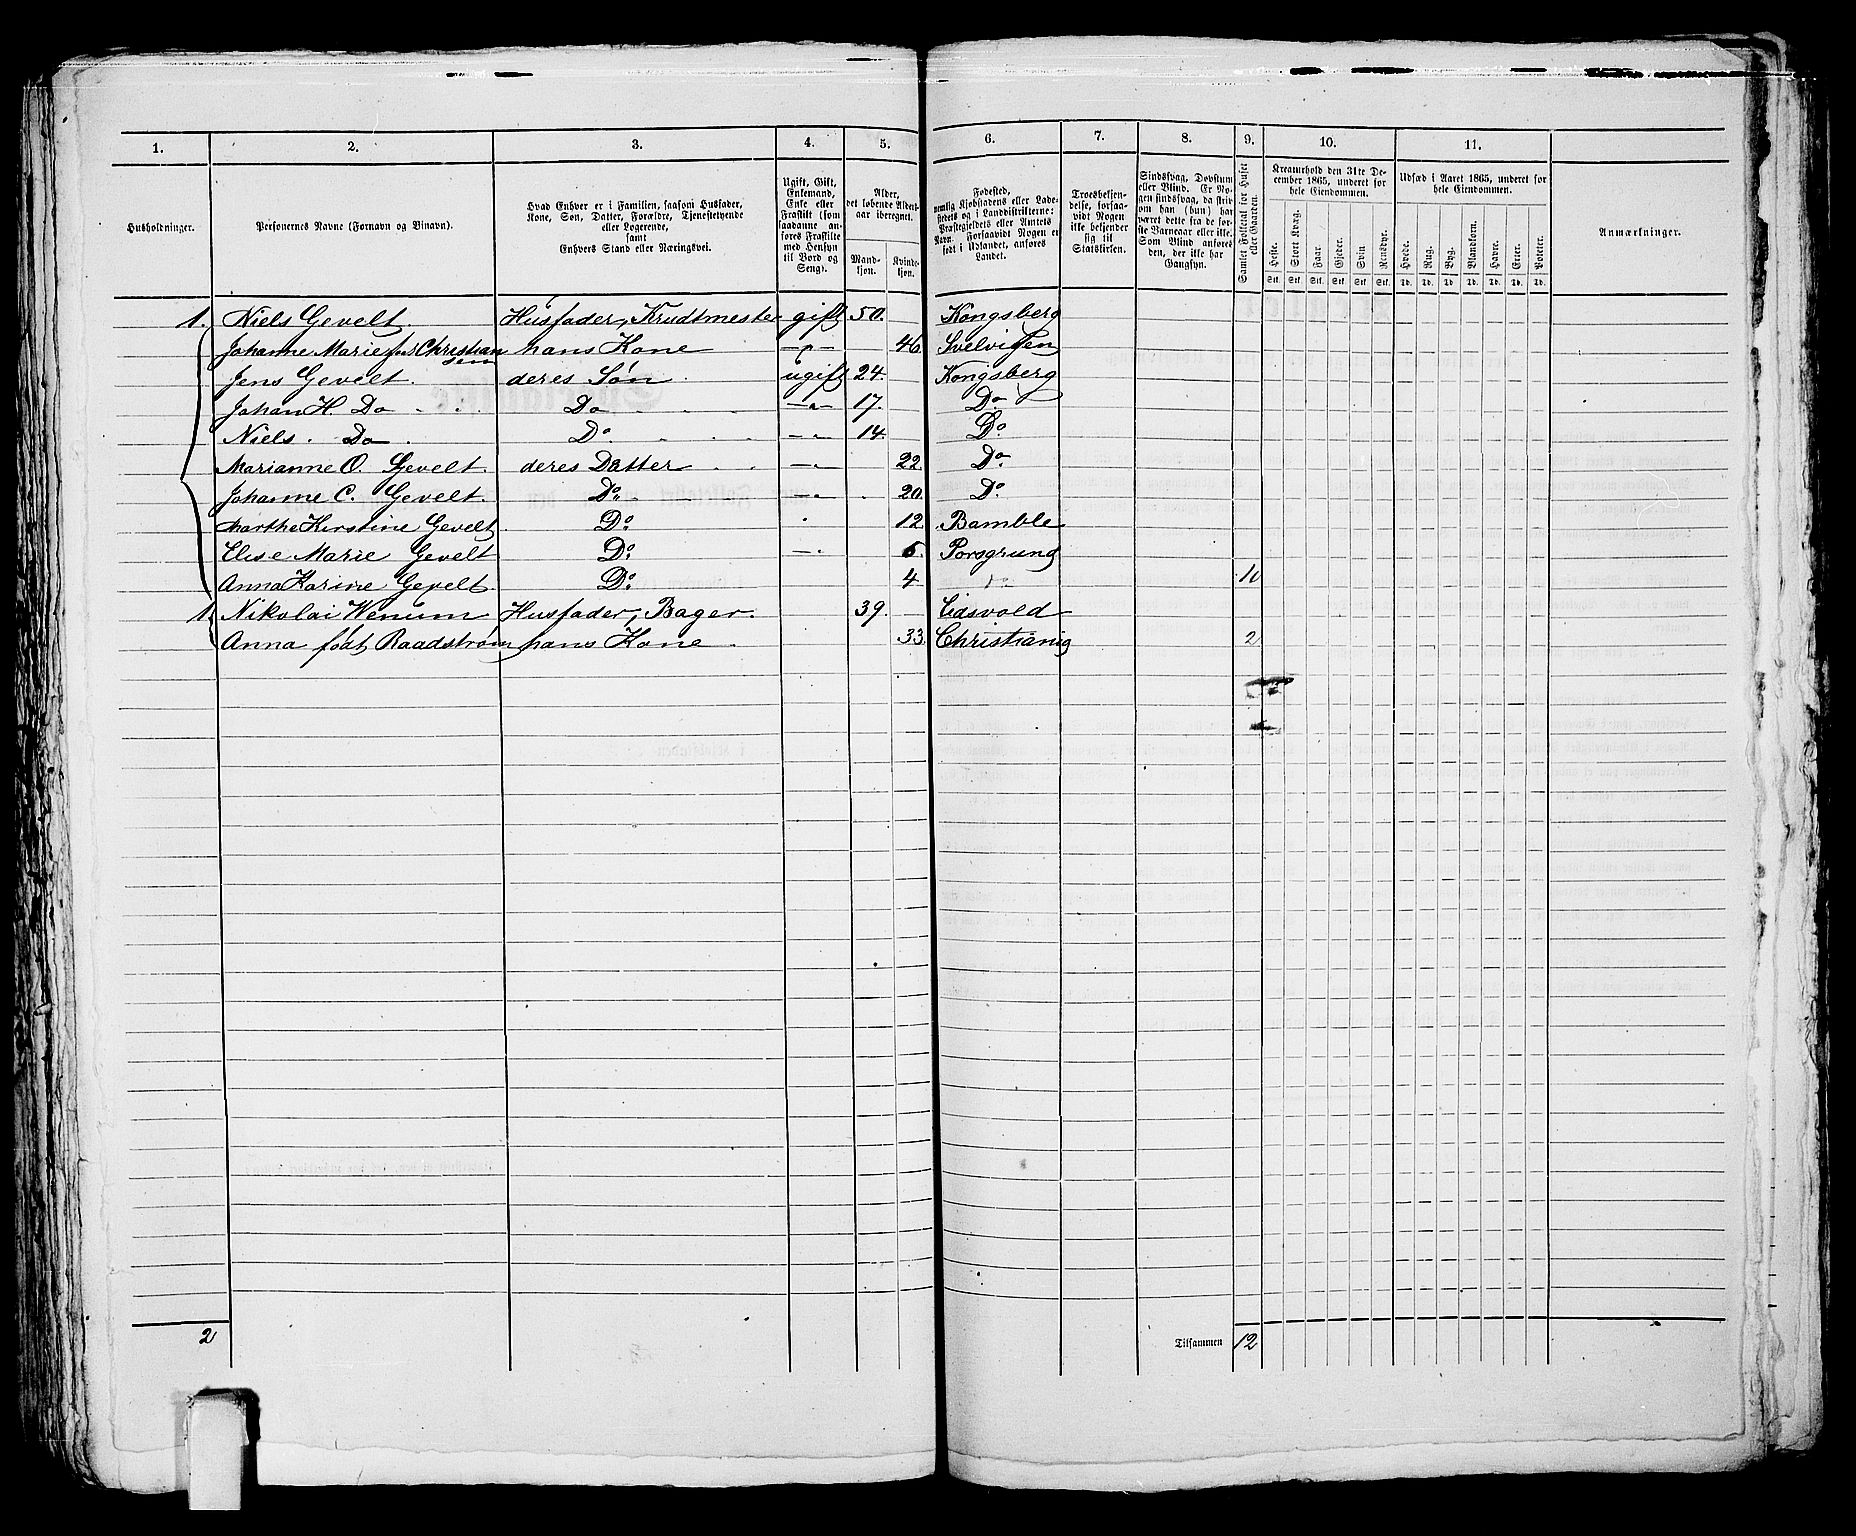 1. 2. 3. 4. 5. 6. 7. 8. 9. 10. 11.
Husholdninger.
Personernes Navne (Fornavn og Binavn).
Hvad Enhver er i Familien, saasom Husfader,
Kone, Søn, Datter, Forældre, Tjenestetyende
eller Logerende,
samt
Enhvers Stand eller Næringsvei.
Ugift, Gift,
Enkemand,
Enke eller
Fraskilt (som
saadanne an-
føres Fraskilte
med Hensyn
til Bord og
Seng).
Alder,
det løbende Alders-
aar iberegnet.
Mand-
kjøn.
Kvinde-
kjøn.
Fødested,
nemlig Kjøbstadens eller Lade-
stedets og i Landdistrikterne:
Præstegjeldets eller Amtets
Navn. Forsaavidt Nogen er
født i Udlandet, anføres
Landet.
Troesbekjen-
delse, forsaa-
vidt Nogen
ikke bekjender
sig til
Statskirken.
Sindssvag, Døvstum
eller Blind. Er No-
gen sindssvag, da skriv
om han (hun) har
været dette fra de før-
ste Barneaar eller ikke.
Som Blind anføres
den, der ikke har
Gangsyn.
Samlet Folketal for Huset
eller Gaarden.
Kreaturhold den 31te De-
cember 1865, underet for
hele Eiendommen.
Heste. Stort Kvæg. Faar. Gjeder. Svin Rensdyr.
Stk. Stk. Stk. Stk. Stk. Stk.
Udsæd i Aaret 1865, underet for
hele Eiendommen.
Hvede. Rug. Byg. Blandkorn. Havre. Erter. Poteter.
Td. Td. Td. Td. Td. Td. Td.
Anmærkninger.
1. Niels Gevelt Husfader, Krudtmester gift 50. Kongsberg
Johanne Marie Christian
sen hans Kone —„— 46. Svelvigen
Jens Gevelt. deres Søn ugift 24. Kongsberg
Johan H. Do Do —„— 17. Do
Niels. Do Do —„— 14. Do
Marianne O. Gevelt. deres Datter —„— 22. Do
Johanne C. Gevelt. Do —„— 20. Do
Marthe Kirstine Gevelt Do 12 Bamble
Elise Marie Gevelt Do —„— 6. Porsgrund
Anna Karine Gevelt. Do 4 do 10
1. Nikolai Wenum Husfader, Bager. 39. Eidsvold
Anna født Raadstrøm hans Kone 33. Christiania 2
2 Tilsammen 12